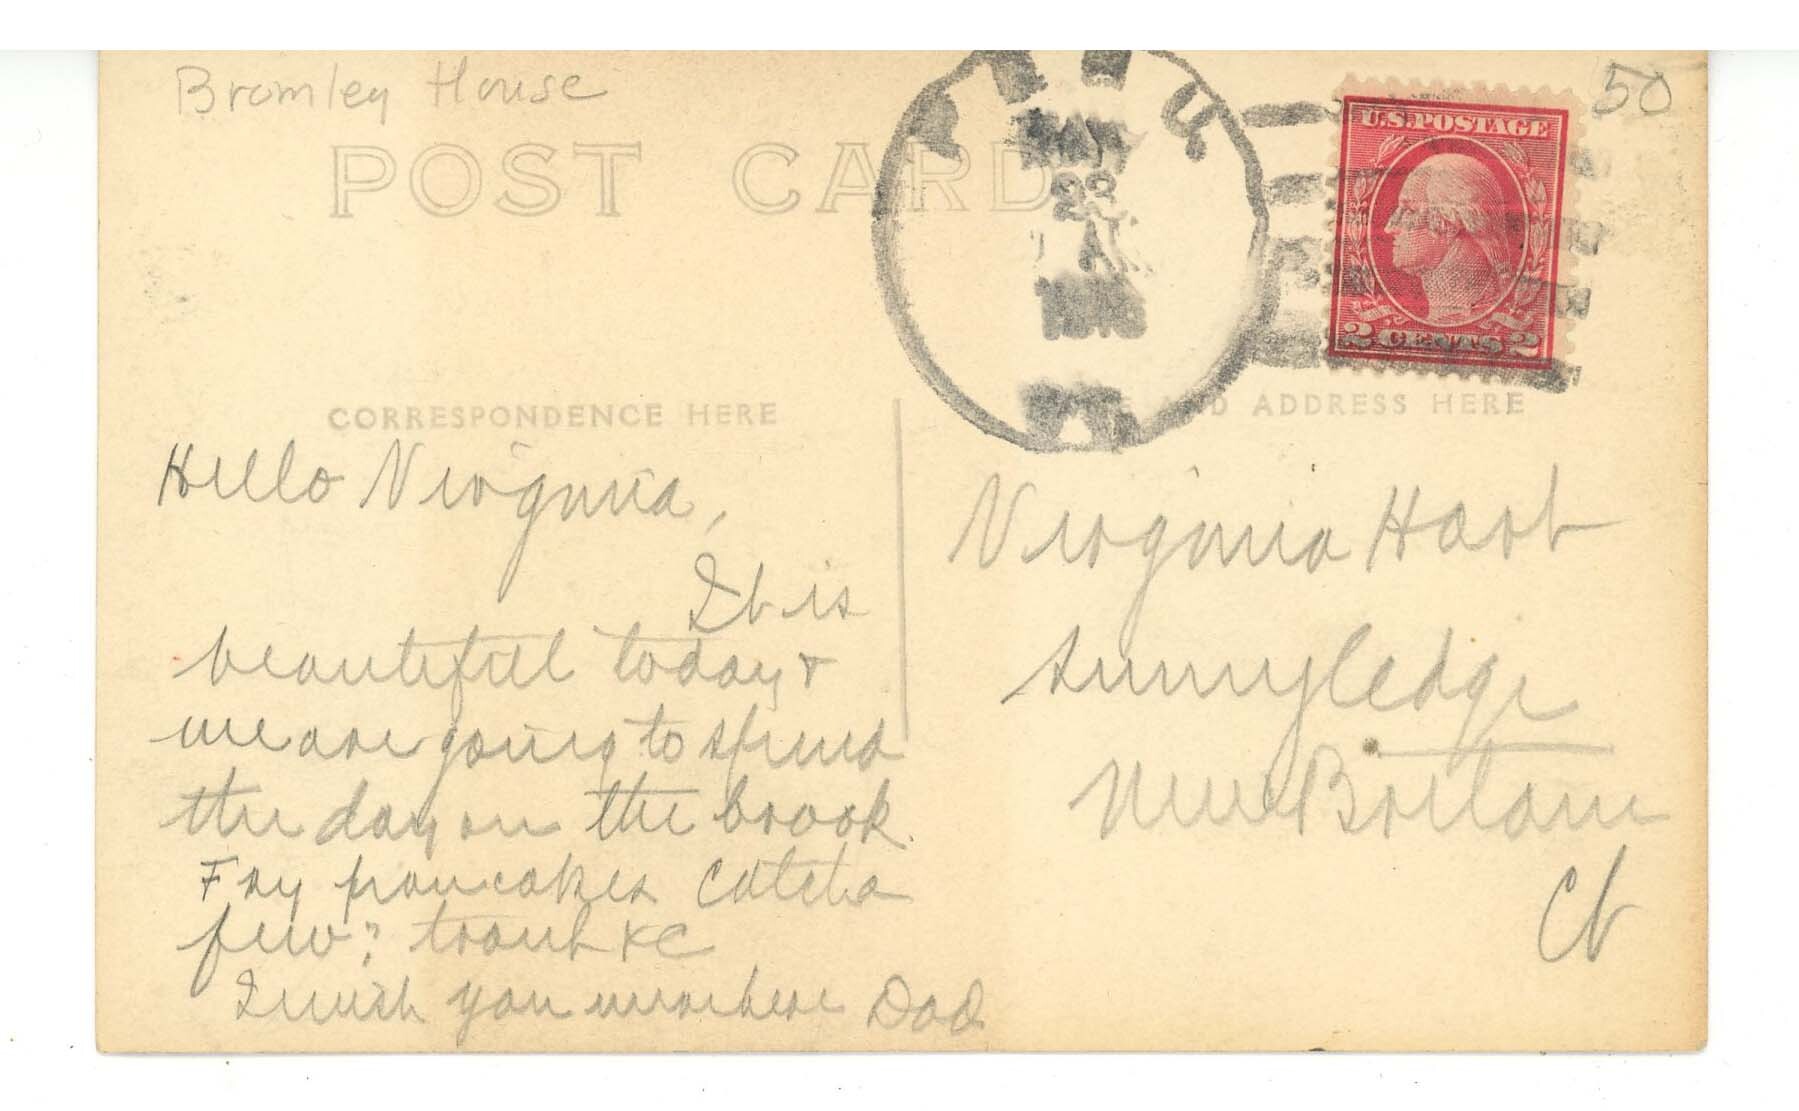 Bromley House
50
POST CARD
U.S. POSTAGE
2 CENTS 2
MAY
22
A
CORRESPONDENCE HERE
AND ADDRESS HERE
Hello Virginia,
It is
beautiful today &
we are going to spend
the day on the brook.
Fry pancakes catch a
few? trout &C
I wish you were here Dad
Virginia Hart
Sunnyledge
New Britain
Ct